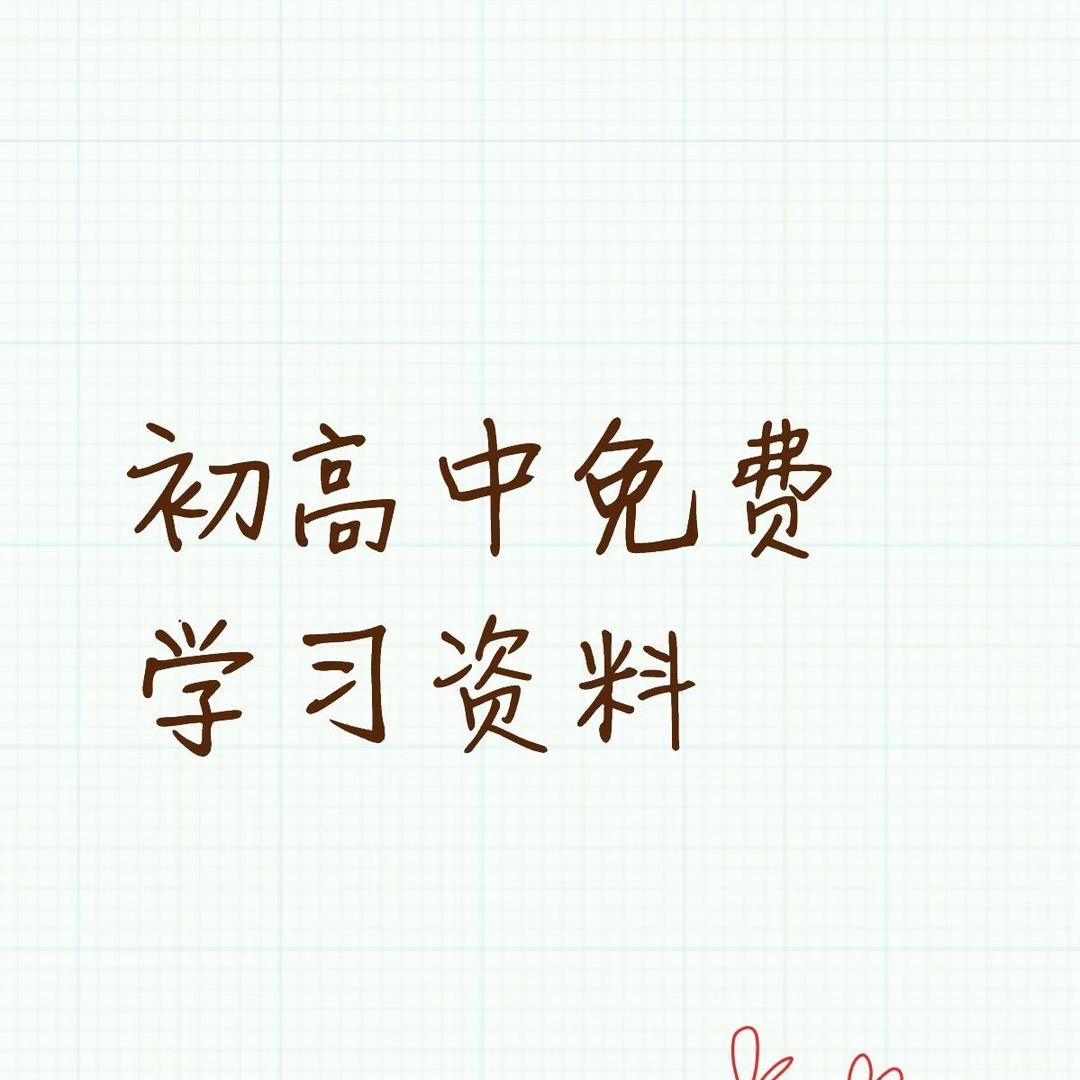 初高中免费
学习资料